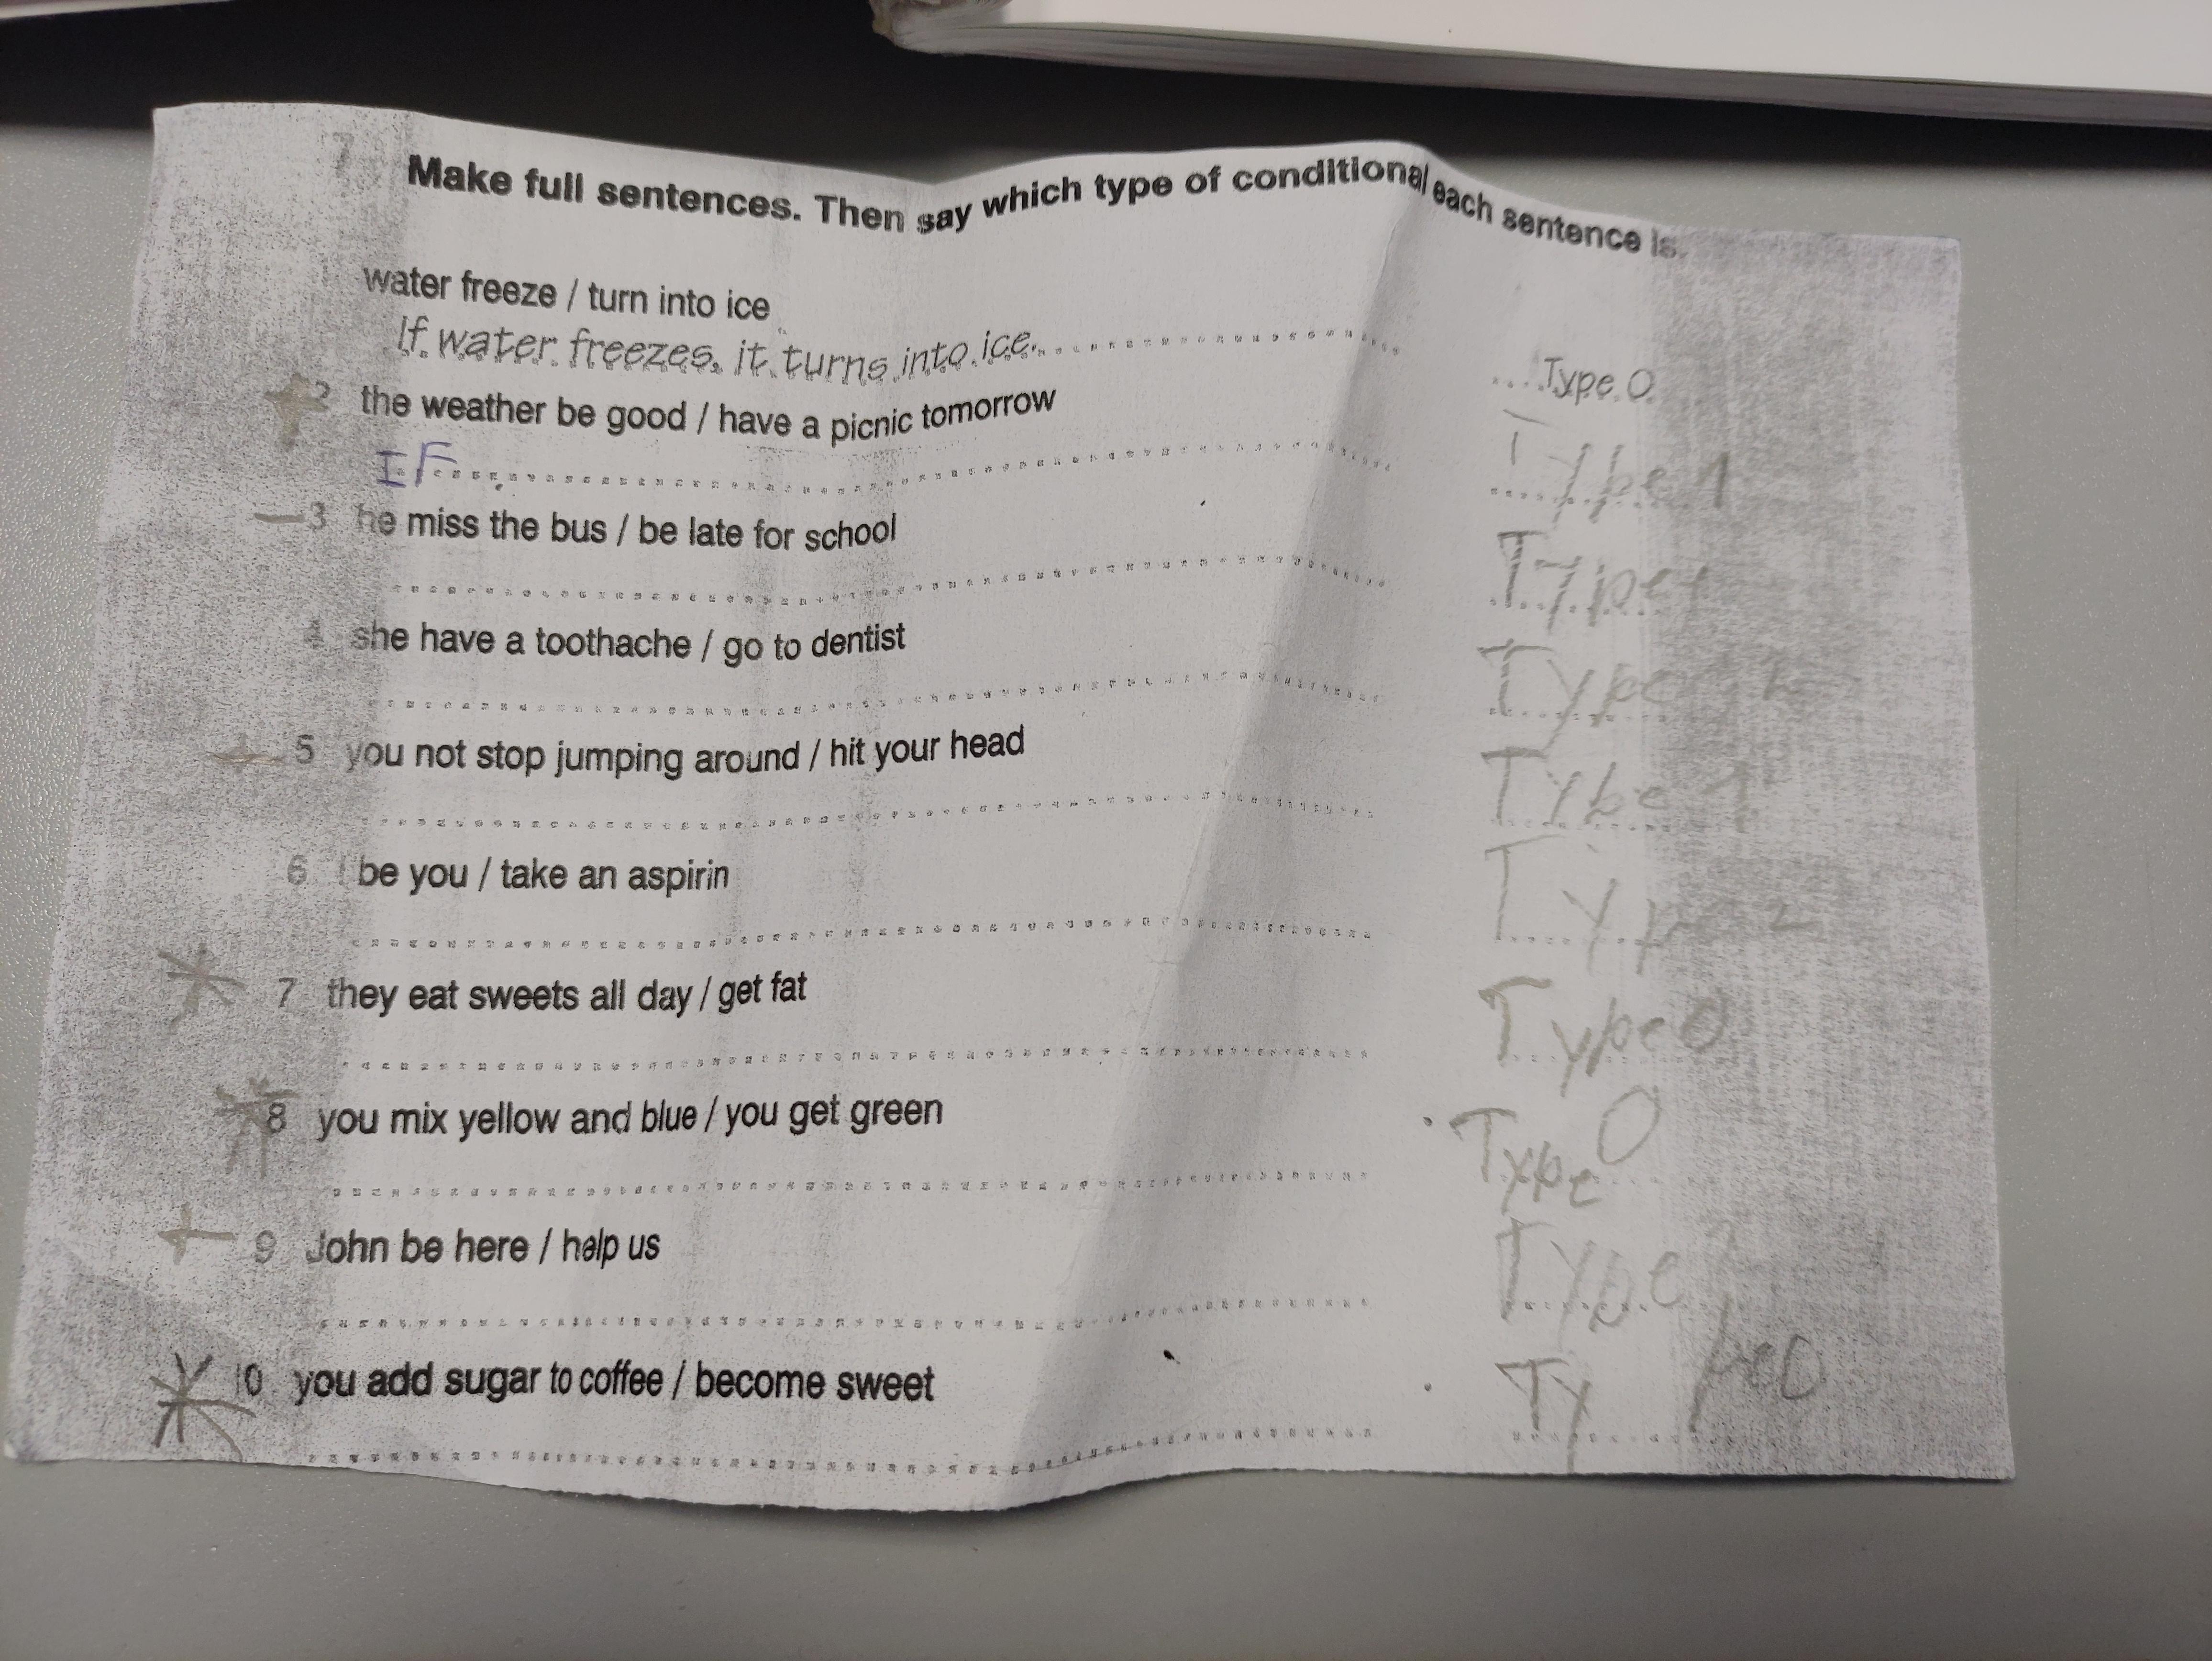 7 Make full sentences. Then say which type of conditional each sentence is.
water freeze / turn into ice
If water freezes, it turns into ice. Type 0
2 the weather be good / have a picnic tomorrow
IF Type 1
3 he miss the bus / be late for school
Type 1
4 she have a toothache / go to dentist
Type
5 you not stop jumping around / hit your head
Type 1
6 I be you / take an aspirin
Type 2
7 they eat sweets all day / get fat
Type 0
8 you mix yellow and blue / you get green
Type 0
9 John be here / help us
Type
10 you add sugar to coffee / become sweet
Type 0